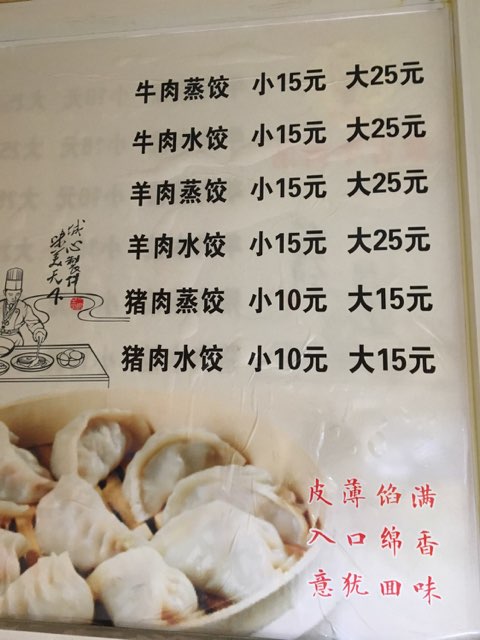 牛肉蒸饺 小15元 大25元
牛肉水饺 小15元 大25元
羊肉蒸饺 小15元 大25元
羊肉水饺 小15元 大25元
猪肉蒸饺 小10元 大15元
猪肉水饺 小10元 大15元
诚心製作
味美天下
皮薄馅满
入口绵香
意犹回味